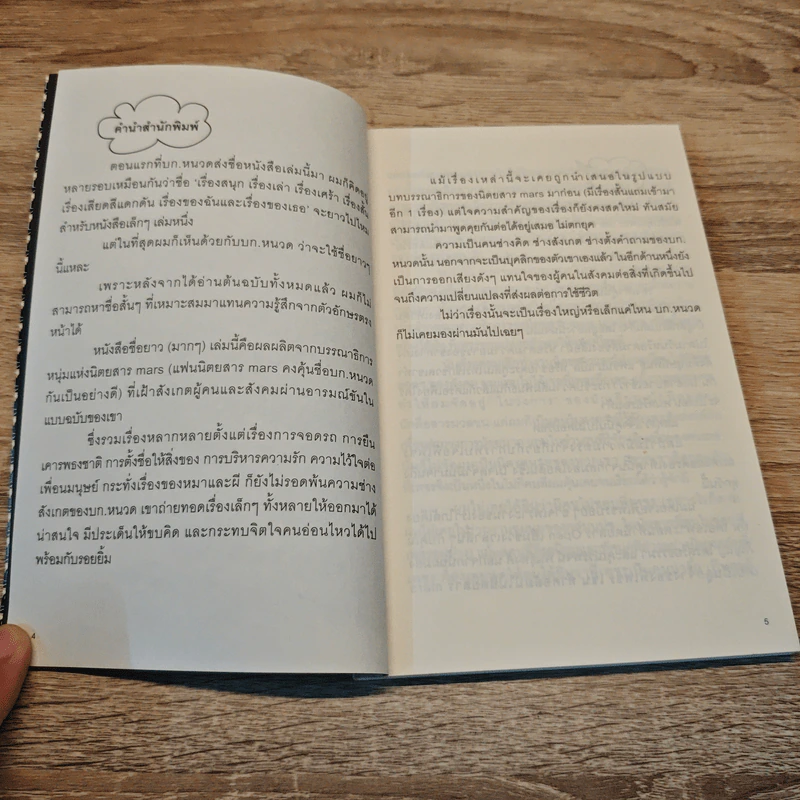 คำนำสำนักพิมพ์
ตอนแรกที่บก.หนวดส่งชื่อหนังสือเล่มนี้มา ผมก็คิดอยู่
หลายรอบเหมือนกันว่าชื่อ 'เรื่องสนุก เรื่องเล่า เรื่องเศร้า เรื่องสั้น
เรื่องเสียดสีแดกดัน เรื่องของฉันและเรื่องของเธอ' จะยาวไปไหม
สำหรับหนังสือเล็กๆ เล่มหนึ่ง
แต่ในที่สุดผมก็เห็นด้วยกับบก.หนวด ว่าจะใช้ชื่อยาวๆ
นี้แหละ
เพราะหลังจากได้อ่านต้นฉบับทั้งหมดแล้ว ผมก็ไม่
สามารถหาชื่อสั้นๆ ที่เหมาะสมมาแทนความรู้สึกจากตัวอักษรตรง
หน้าได้
หนังสือชื่อยาว (มากๆ) เล่มนี้คือผลผลิตจากบรรณาธิการ
หนุ่มแห่งนิตยสาร mars (แฟนนิตยสาร mars คงคุ้นชื่อบก.หนวด
กันเป็นอย่างดี) ที่เฝ้าสังเกตผู้คนและสังคมผ่านอารมณ์ขันใน
แบบฉบับของเขา
ซึ่งรวมเรื่องหลากหลายตั้งแต่เรื่องการจอดรถ การยืน
เคารพธงชาติ การตั้งชื่อให้สิ่งของ การบริหารความรัก ความไว้ใจต่อ
เพื่อนมนุษย์ กระทั่งเรื่องของหมาและผี ก็ยังไม่รอดพ้นความช่าง
สังเกตของบก.หนวด เขาถ่ายทอดเรื่องเล็กๆ ทั้งหลายให้ออกมาได้
น่าสนใจ มีประเด็นให้ขบคิด และกระทบจิตใจคนอ่อนไหวได้ไป
พร้อมกับรอยยิ้ม
4
แม้เรื่องเหล่านี้จะเคยถูกนำเสนอในรูปแบบ
บทบรรณาธิการของนิตยสาร mars มาก่อน (มีเรื่องสั้นแถมเข้ามา
อีก 1 เรื่อง) แต่ใจความสำคัญของเรื่องก็ยังคงสดใหม่ ทันสมัย
สามารถนำมาพูดคุยกันต่อได้อยู่เสมอ ไม่ตกยุค
ความเป็นคนช่างคิด ช่างสังเกต ช่างตั้งคำถามของบก.
หนวดนั้น นอกจากจะเป็นบุคลิกของตัวเขาเองแล้ว ในอีกด้านหนึ่งยัง
เป็นการออกเสียงดังๆ แทนใจของผู้คนในสังคมต่อสิ่งที่เกิดขึ้นไป
จนถึงความเปลี่ยนแปลงที่ส่งผลต่อการใช้ชีวิต
ไม่ว่าเรื่องนั้นจะเป็นเรื่องใหญ่หรือเล็กแค่ไหน บก.หนวด
ก็ไม่เคยมองผ่านมันไปเฉยๆ
5